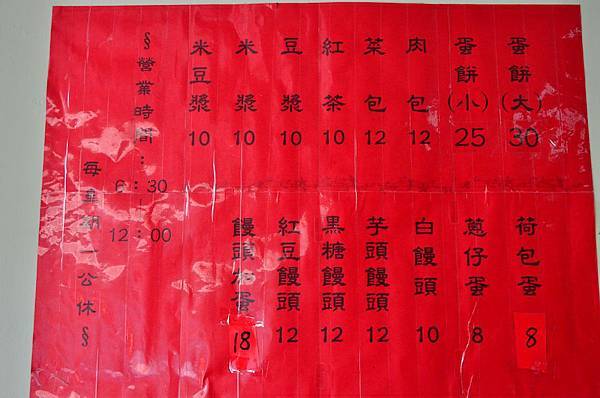 蛋餅(大) 30
蛋餅(小) 25
肉包 12
菜包 12
紅茶 10
豆漿 10
米漿 10
米豆漿 10
荷包蛋 8
蔥仔蛋 8
白饅頭 10
芋頭饅頭 12
黑糖饅頭 12
紅豆饅頭 12
饅頭加蛋 18
§營業時間:
6:30
12:00
每星期一公休§